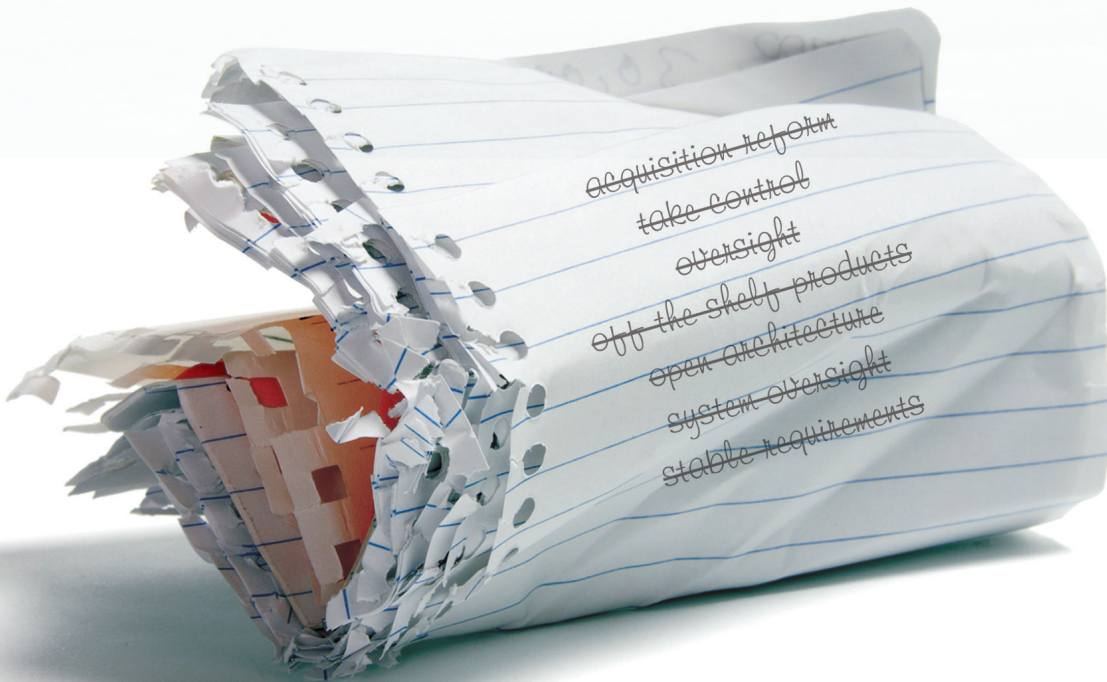 acquisition reform
take control
oversight
off the shelf products
open architecture
system oversight
stable requirements